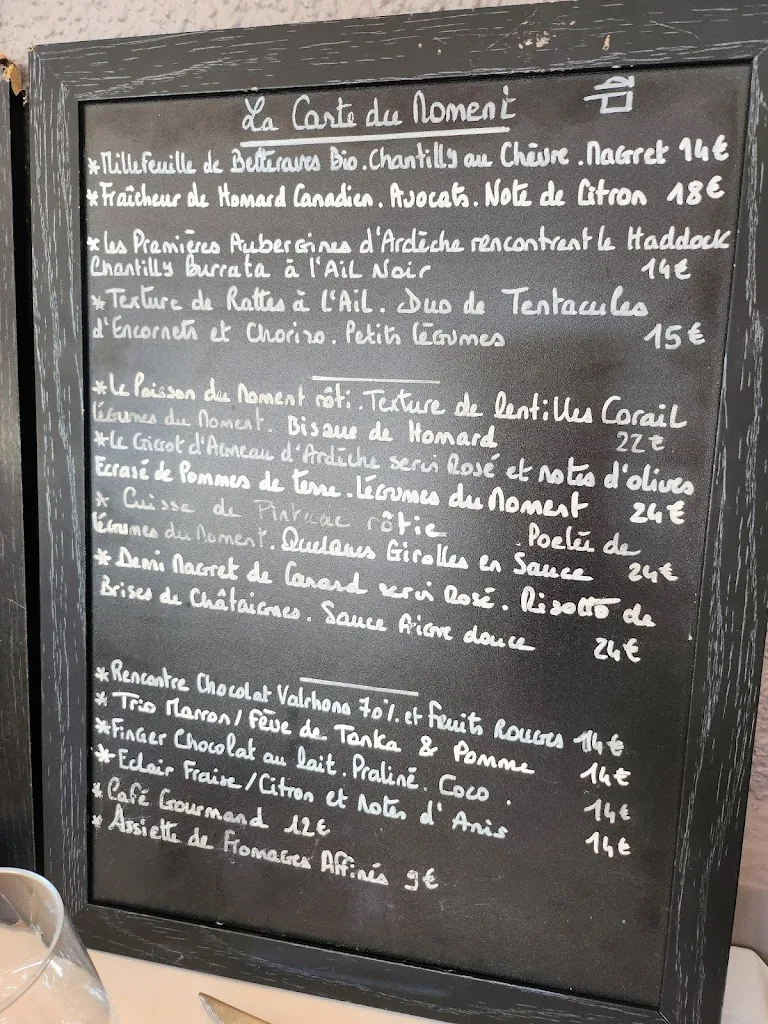 La Carte du Moment
*Millefeuille de Betteraves Bio. Chantilly au Chèvre. Magret 14€
*Fraîcheur de Homard Canadien. Avocats. Note de Citron 18€
*Les Premières Aubergines d'Ardèche rencontrent le Haddock
Chantilly Burrata à l'Ail Noir 14€
*Texture de Rattes à l'Ail. Duo de Tentacules
d'Encornets et Chorizo. Petits légumes 15€
*Le Poisson du Moment rôti. Texture de lentilles Corail
légumes du Moment. Bisque de Homard 22€
*Le Gigot d'Agneau d'Ardèche servi Rosé et notes d'olives
Ecrasé de Pommes de terre. légumes du Moment 24€
* Cuisse de Pintade rôtie . Poelée de
légumes du Moment. Quelques Girolles en Sauce 24€
*Demi Magret de Canard servi Rosé. Risotto de
Brises de Châtaignes. Sauce Aigre douce 24€
*Rencontre Chocolat Valrhona 70% et fruits Rouges 14€
* Trio Marron/Fève de Tonka & Pomme 14€
*Finger Chocolat au lait. Praliné. Coco . 14€
*Eclair Fraise/Citron et Notes d'Anis 14€
* Café Gourmand 12€
* Assiette de Fromages Affinés 9€